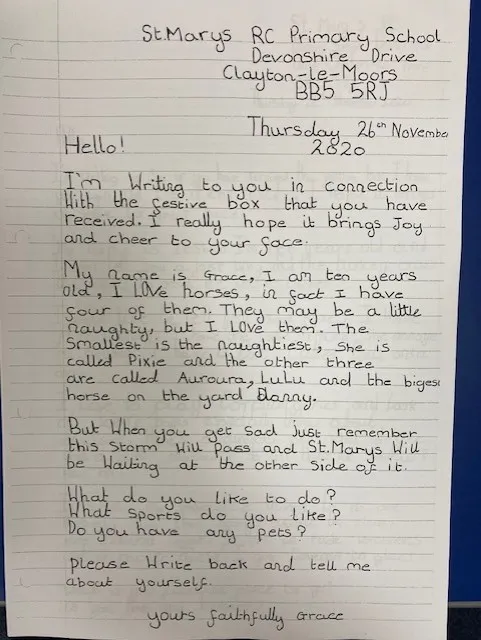 St.Marys RC Primary School
Devonshire Drive
Clayton-le-Moors
BB5 5RJ
Thursday 26th November
2020
Hello!
I'm Writing to you in connection
With the festive box that you have
received. I really hope it brings Joy
and cheer to your face.
My name is Grace, I am ten years
old, I LOVe horses, in fact I have
four of them. They may be a little
naughty, but I LOVe them. The
Smallest is the naughtiest, She is
called Pixie and the other three
are called Auroura, LuLu and the bigest
horse on the yard Danny.
But When you get sad just remember
this storm Will Pass and St.Marys Will
be Waiting at the other side of it.
What do you like to do?
What Sports do you like?
Do you have any pets?
please Write back and tell me
about yourself.
yours faithfully Grace